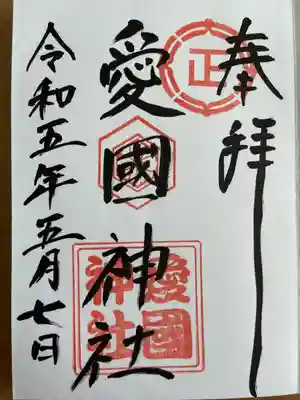 奉拝
正
愛國神社
愛國神社
令和五年五月七日